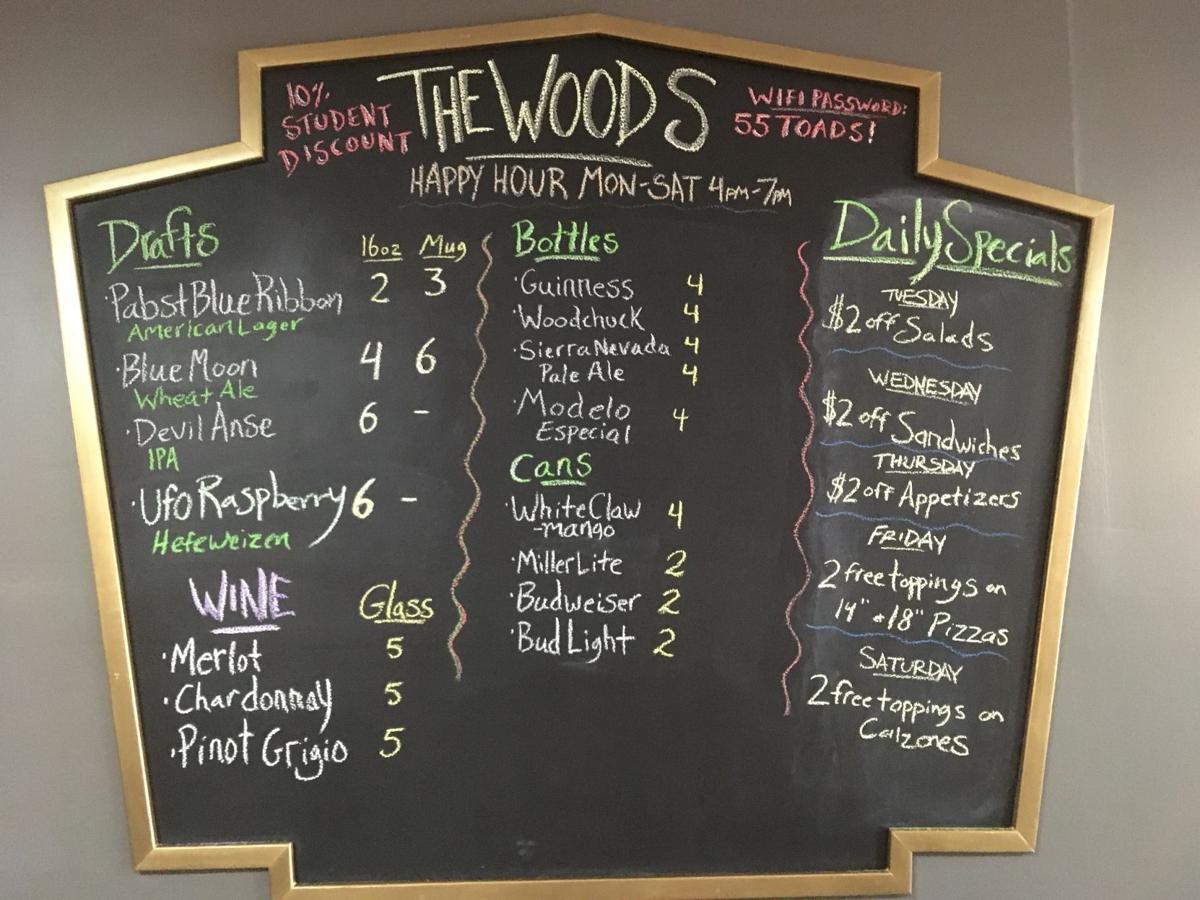 10%
STUDENT
DISCOUNT
THE WOODS
WIFI PASSWORD:
55 TOADS!
HAPPY HOUR MON-SAT 4PM-7PM
Drafts 16oz Mug
·Pabst Blue Ribbon 2 3
American Lager
·Blue Moon 4 6
Wheat Ale
·Devil Anse 6 -
IPA
·Ufo Raspberry 6 -
Hefeweizen
WINE Glass
·Merlot 5
·Chardonnay 5
·Pinot Grigio 5
Bottles
·Guinness 4
·Woodchuck 4
·Sierra Nevada 4
Pale Ale 4
·Modelo 4
Especial
Cans
·White Claw 4
-mango
·Miller Lite 2
·Budweiser 2
·Bud Light 2
Daily Specials
TUESDAY
$2 off Salads
WEDNESDAY
$2 off Sandwiches
THURSDAY
$2 off Appetizers
FRIDAY
2 free toppings on
14" + 18" Pizzas
SATURDAY
2 free toppings on
Calzones